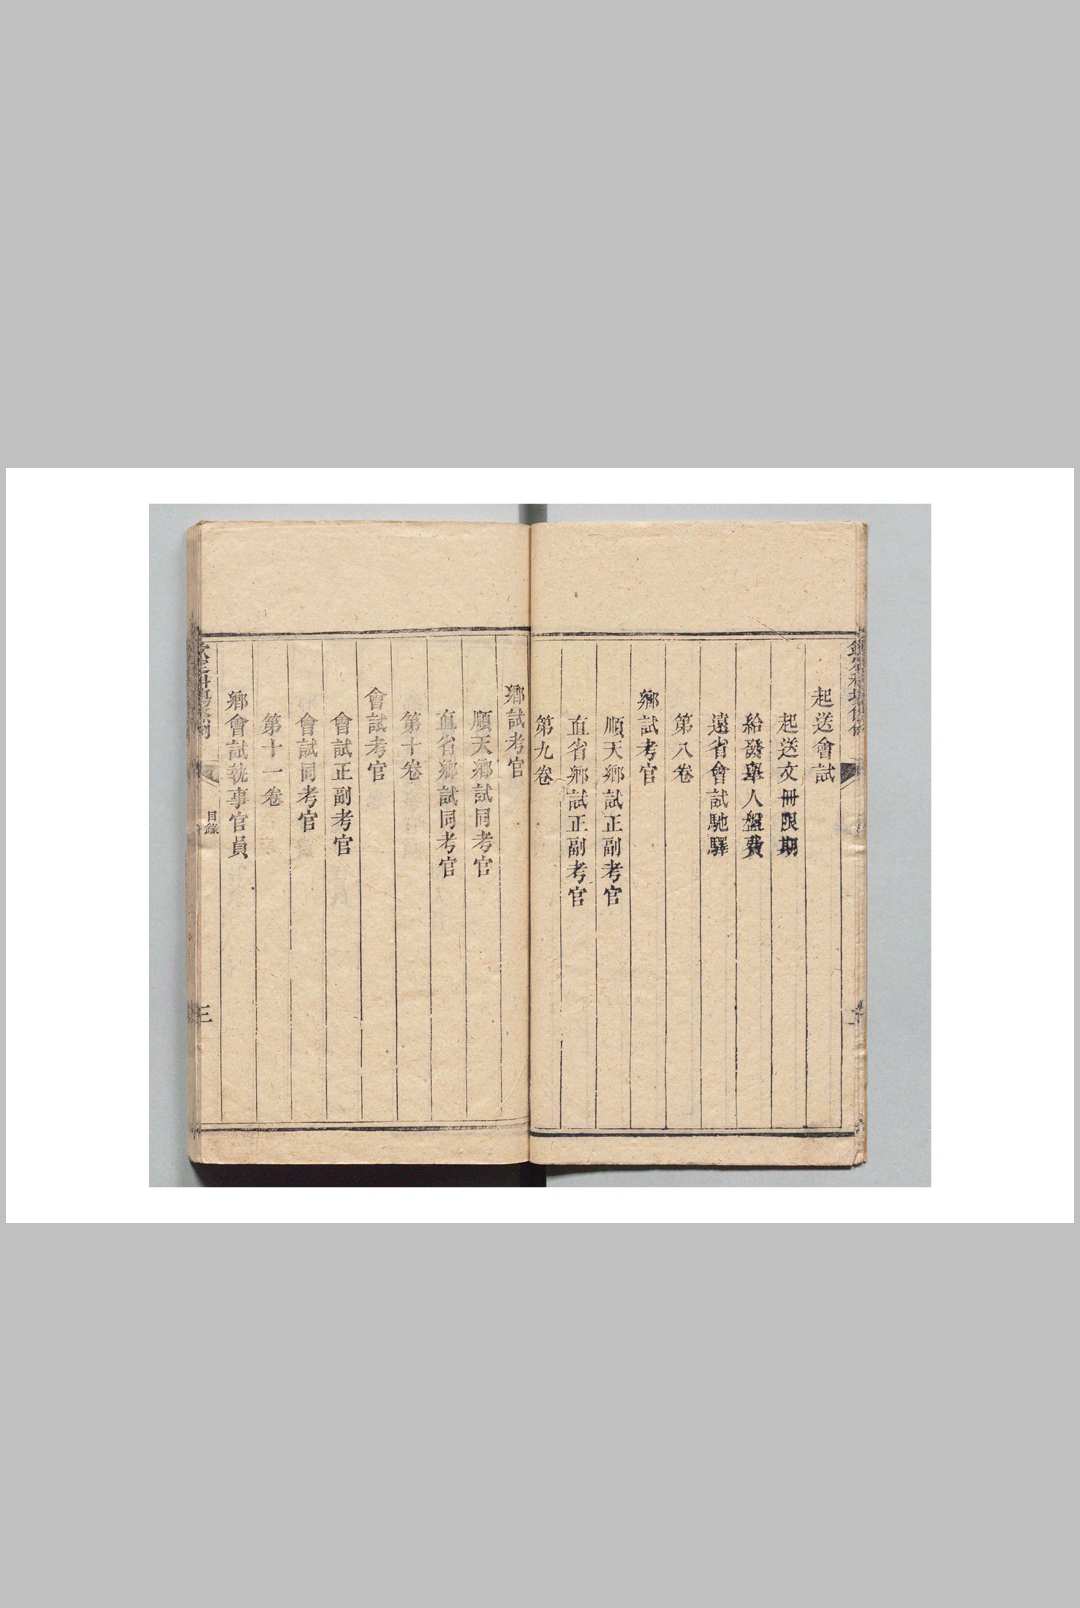 起送會試
起送文冊限期
給發舉人盤費
遠省會試馳驛
第八卷
鄉試考官
順天鄉試正副考官
直省鄉試正副考官
第九卷
鄉試考官
順天鄉試同考官
直省鄉試同考官
第十卷
會試考官
會試正副考官
會試同考官
第十一卷
鄉會試執事官員
欽定科場條例
目錄
三